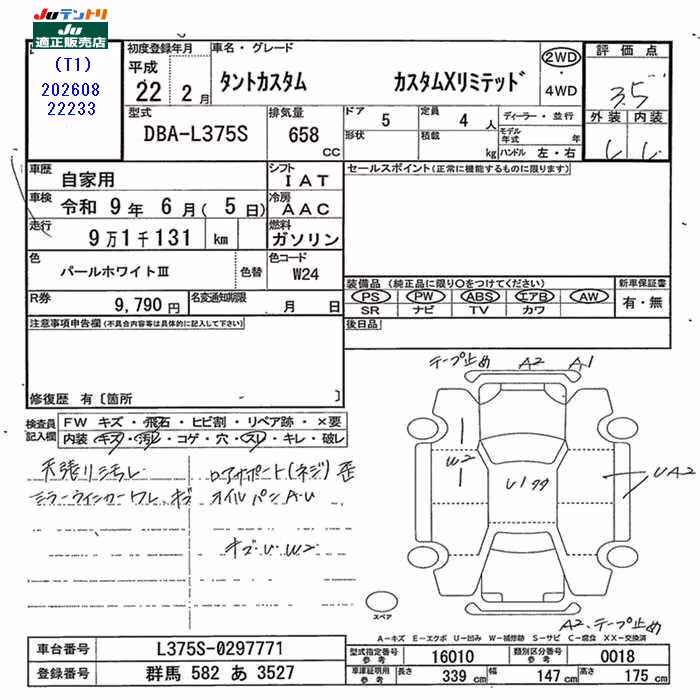 Juテントリ
Ju適正販売店
(T1)
202608
22233
初度登録年月
平成
22 2月
車名・グレード
タントカスタム カスタムXリミテッド
2WD
・
4WD
評価点
3.5
外装 内装
型式
DBA-L375S
排気量
658
CC
ドア 5
形状
定員 4人
積載 kg
ディーラー・並行
モデル年式 年
ハンドル 左・右
車歴 自家用
シフト IAT
車検 令和 9年 6月( 5日)
冷房 AAC
走行 9万1千131 km
燃料 ガソリン
色 パールホワイトⅢ 色替
色コード W24
R券 9,790円
名変通知期限 月 日
セールスポイント(正常に機能するものに限ります)
装備品(純正品に限り○をつけてください)
PS PW ABS エアB AW
SR ナビ TV カワ
新車保証書
有・無
後日品
注意事項申告欄(不具合内容等は具体的に記入して下さい)
修復歴 有〔箇所 〕
検査員記入欄
FW キズ・飛石・ヒビ割・リペア跡・×要
内装 キズ・汚レ・コゲ・穴・スレ・キレ・破レ
天張リ汚レ
ロアサポート(ネジ)歪
ミラーウインカーワレ、キズ
オイルパンA・U
キズ・U・W2
テープ止め A2 A1
W2
U1
UA2
A2、テープ止め
スペア
A－キズ E－エクボ U－凹み W－補修跡 S－サビ C－腐食 XX－交換済
車台番号 L375S-0297771
登録番号 群馬 582 あ 3527
型式指定番号 参考 16010
類別区分番号 参考 0018
車庫証明用 参考 長さ 339cm 幅 147cm 高さ 175cm